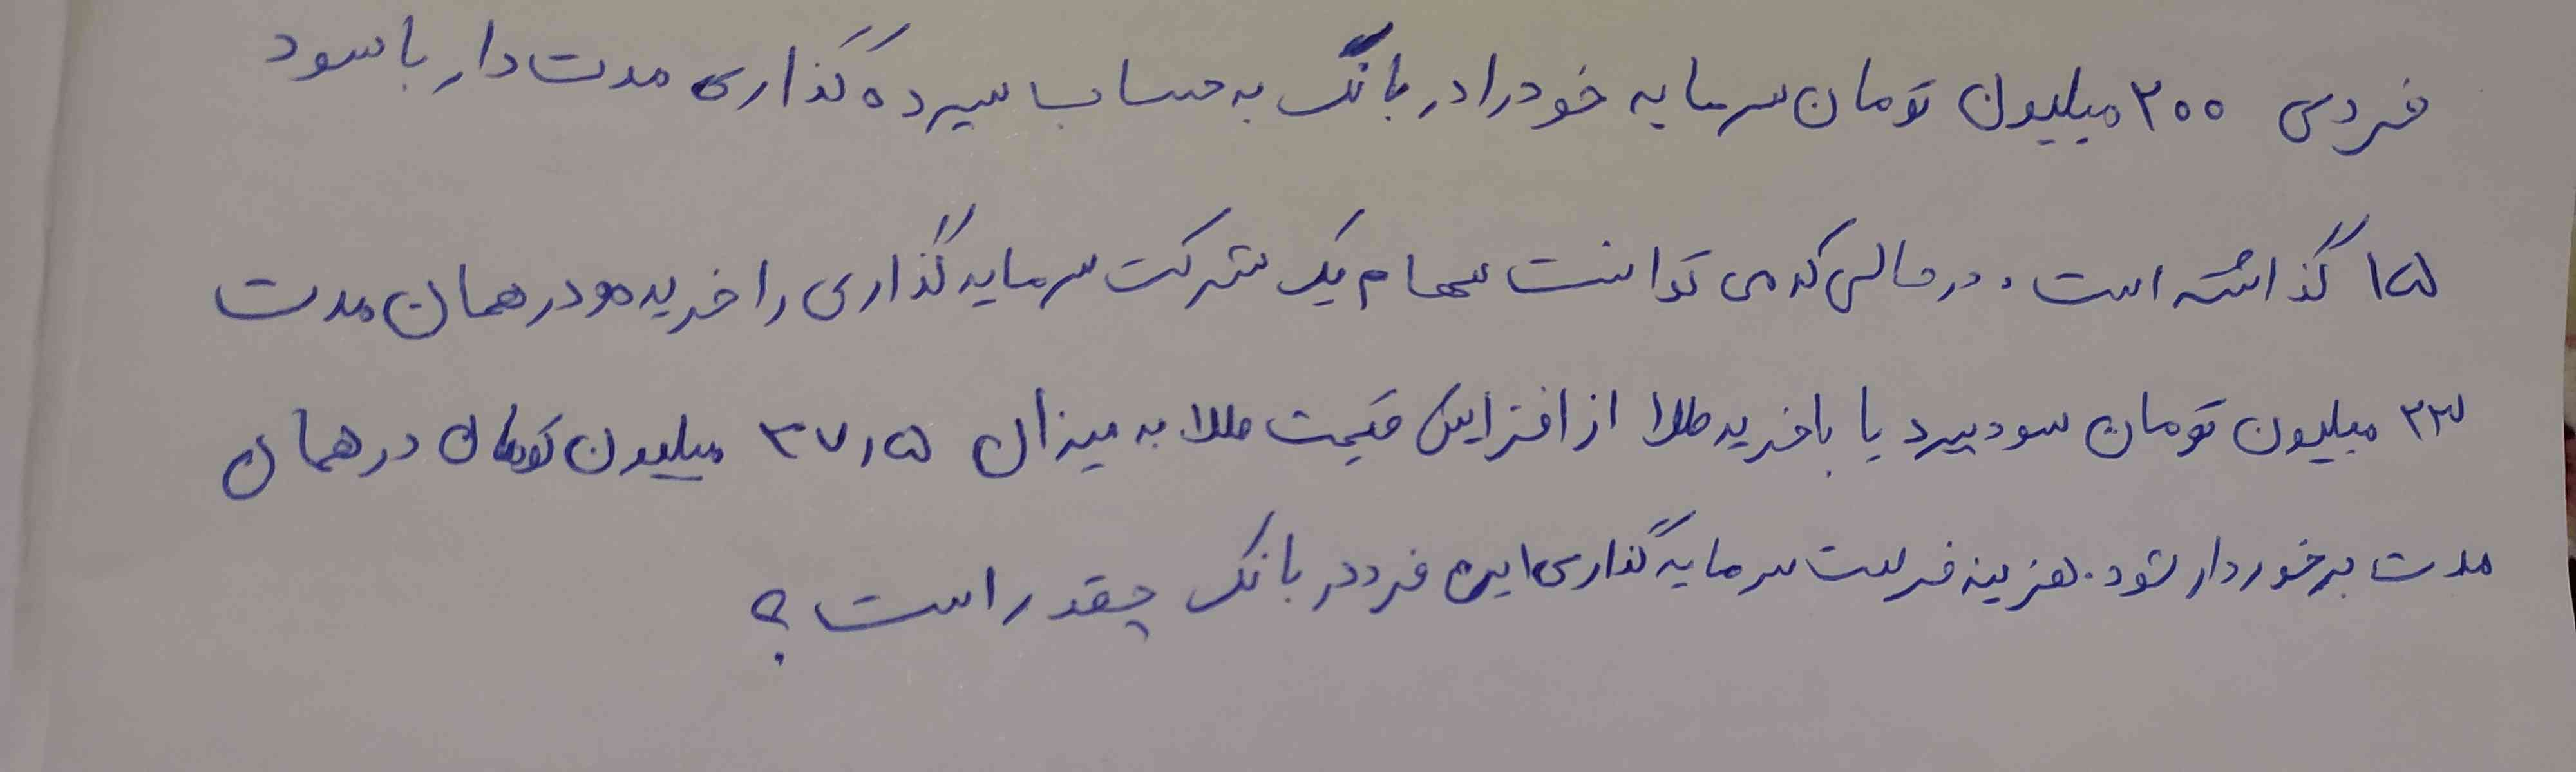 فردی ۲۰۰ میلیون تومان سرمایه خود را در بانک به حساب سپرده گذاری مدت دار با سود
۱۵ گذاشته است. در حالی که می توانست سهام یک شرکت سرمایه گذاری را خریده و در همان مدت
۲۳ میلیون تومان سود ببرد یا با خرید طلا از افزایش قیمت طلا به میزان ۳۷٫۵ میلیون تومان در همان
مدت برخوردار شود. هزینه فرصت سرمایه گذاری این فرد در بانک چقدر است؟